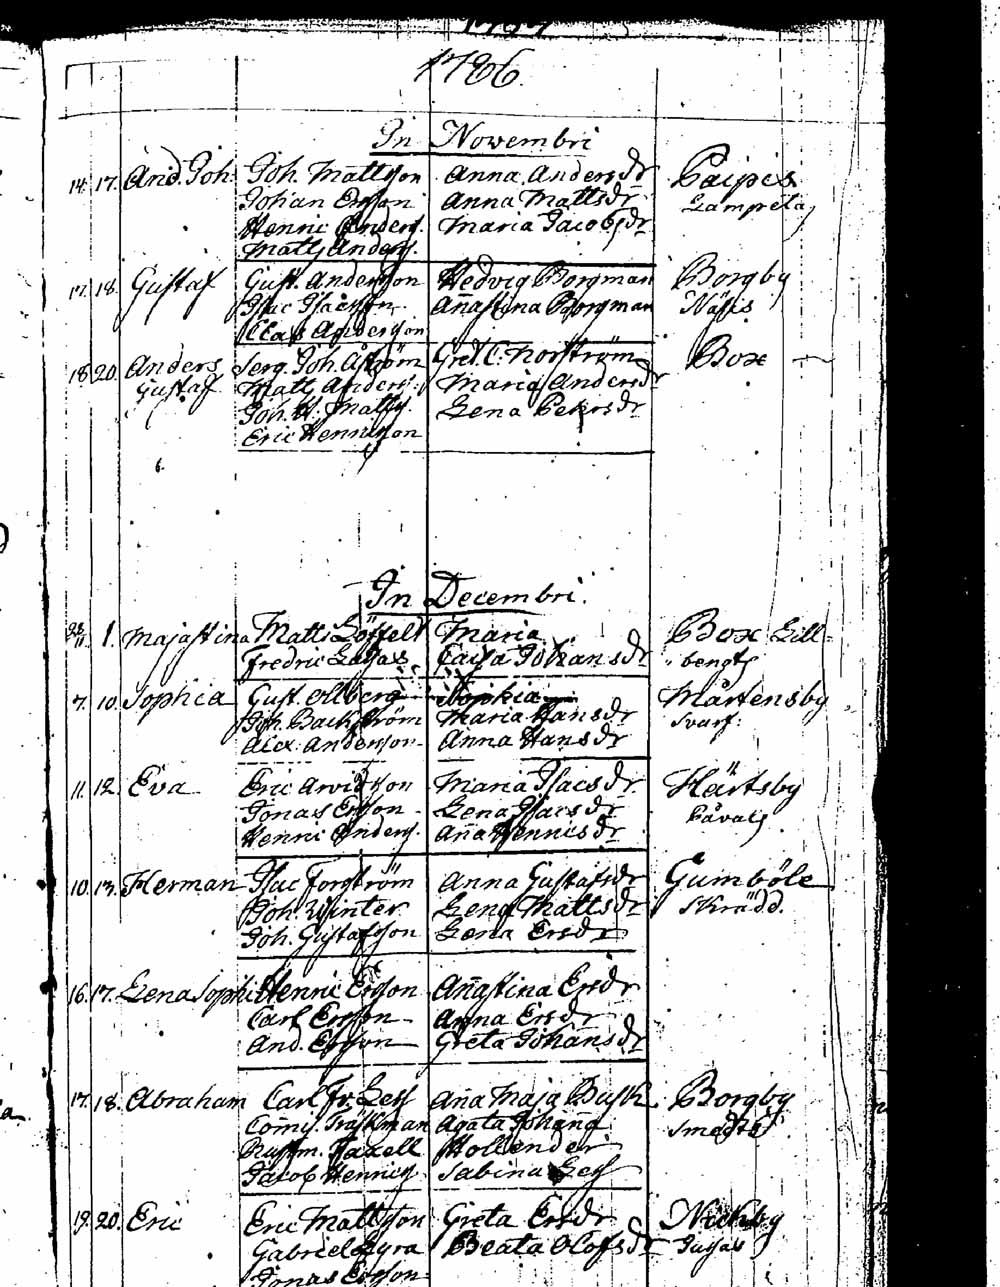 1786.
In Novembri
14. 17. And. Joh. Joh. Mattsson Anna Andersdr Paipis
Johan Ersson Anna Mattsdr Lampreta
Henric Anders. Maria Jacobsdr
Matts Anders.
17. 18. Gustaf Gust. Andersson Hedvig Borgman Borgby
Isac Isacsson Annastina Borgman Näsis
Clas Andersson
18. 20. Anders Serg. Joh. Åström Gret. C. Norström Box
Gustaf Matts Anders. Maria Andersdr
Joh. H. Matts. Lena Petersdr
Eric Henricsson
In Decembri.
28/11. 1. Majastina Matts Löffelt Maria Box Lill-
Fredric Cajsa Johansdr bengts
7. 10. Sophia Gust. Allberg Sophia Mårtensby
Joh. Backström Maria Hansdr Svarf.
Alex. Andersson Anna Hansdr
11. 12. Eva Eric Arvidsson Maria Isacsdr Härtsby
Jonas Ersson Lena Isacsdr Påvals
Henric Anders. Anna Henricsdr
10. 13. Herman Isac Forsström Anna Gustafsdr Gumböle
Joh. Winter Lena Mattsdr Skrädd.
Joh. Gustafsson Lena Ersdr
16. 17. Lena Sophi Henric Ersson Annastina Ersdr
Carl Ersson Anna Ersdr
And. Ersson Greta Johansdr
17. 18. Abraham Carl Fr. Anna Maja Busk Borgby
Comis. Träskman Agata Johanna Smedts
Faxell Hollender
Jacob Henrics. Sabina
19. 20. Eric Eric Mattsson Greta Ersdr Nickby
Gabriel Lyra Beata Olofsdr
Jonas Ersson